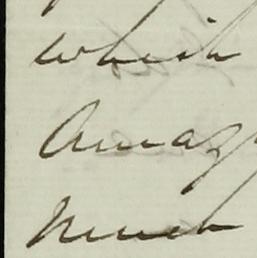 which
Amaz
much